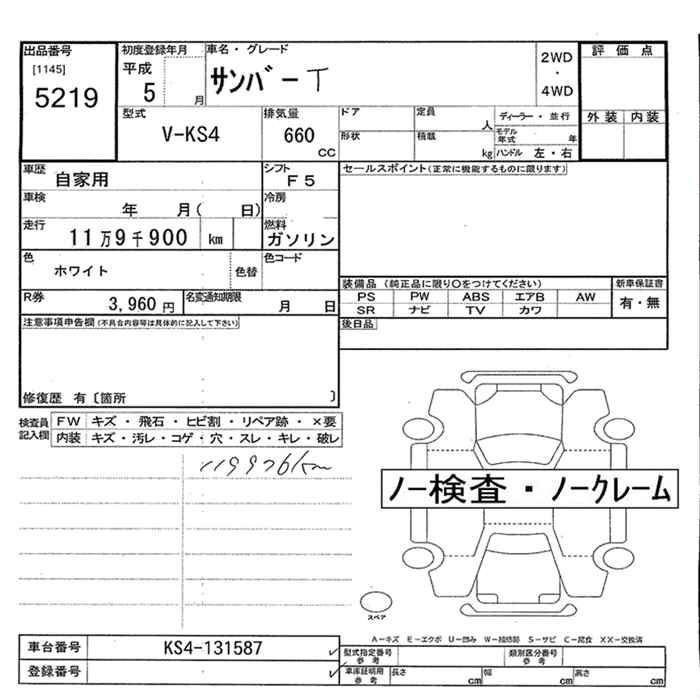 出品番号
[1145]
5219
初度登録年月
平成
5 月
車名・グレード
サンバーT
2WD
・
4WD
評価点
外装 内装
型式
V-KS4
排気量
660
CC
ドア
定員
人
ディーラー・並行
形状
積載
kg
モデル年式
年
ハンドル 左・右
車歴
自家用
シフト
F5
セールスポイント(正常に機能するものに限ります)
車検
年 月( 日)
冷房
走行
11万9千900 km
燃料
ガソリン
色
ホワイト
色替
色コード
装備品 (純正品に限り○をつけてください)
新車保証書
PS PW ABS エアB AW
有・無
SR ナビ TV カワ
R券
3,960円
名変通知期限
月 日
後日品
注意事項申告欄(不具合内容等は具体的に記入して下さい)
修復歴 有〔箇所 〕
検査員記入欄
FW キズ・飛石・ヒビ割・リペア跡・×要
内装 キズ・汚レ・コゲ・穴・スレ・キレ・破レ
119926km
ノー検査・ノークレーム
スペア
A-キズ E-エクボ U-凹み W-補修跡 S-サビ C-腐食 XX-交換済
車台番号
KS4-131587
型式指定番号
参考
類別区分番号
参考
登録番号
車庫証明用
参考
長さ cm
幅 cm
高さ cm